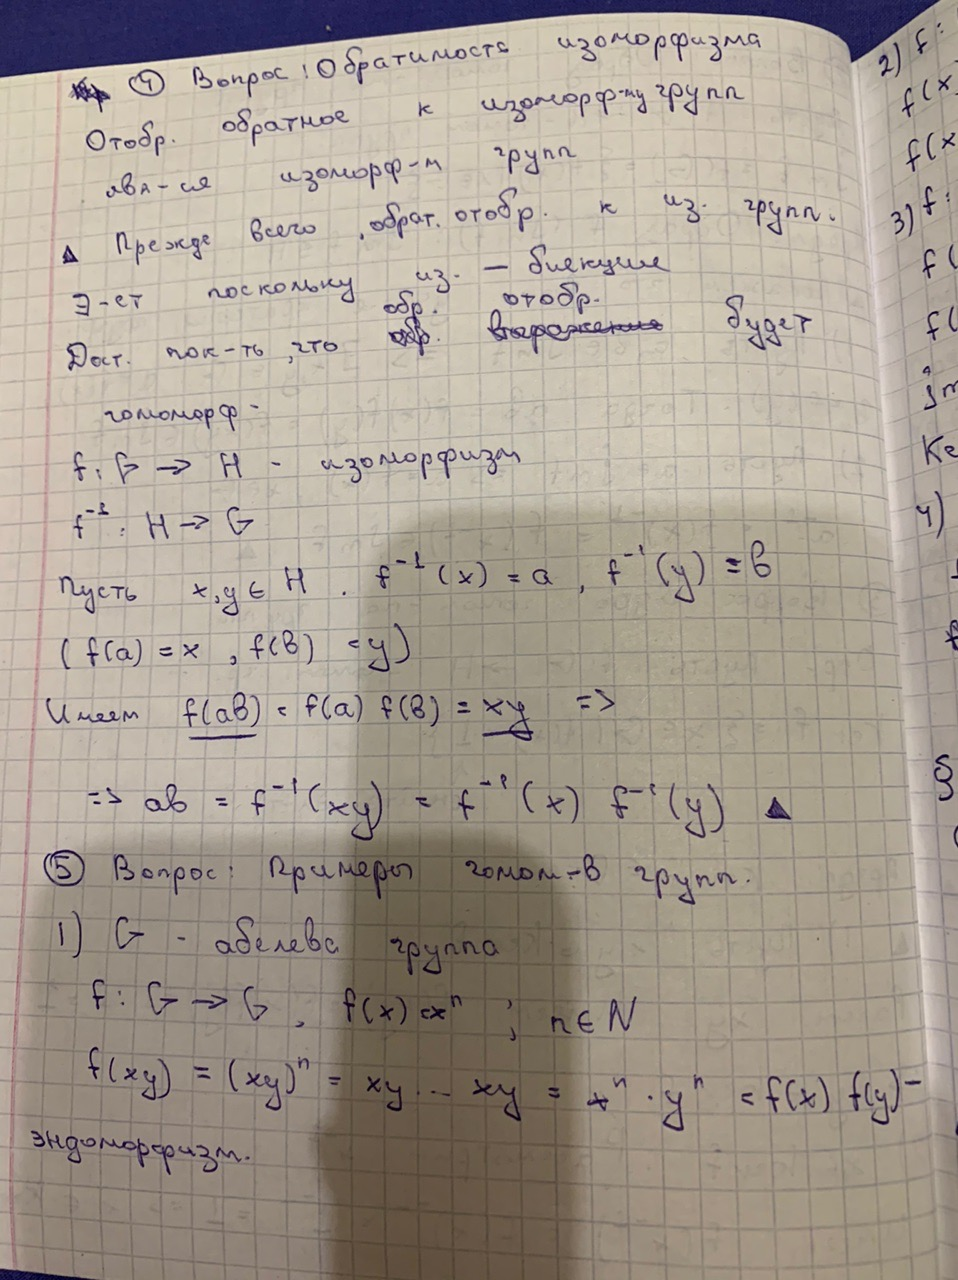 ④ Вопрос: Обратимость изоморфизма
Отобр. обратное к изоморф-му групп
явл-ся изоморф-м групп
▲ Прежде всего, обрат. отобр. к из. групп.
Э-ет поскольку из. — биекция
обр. отобр.
Дост. пок-ть, что будет
гомоморф -
f: G → H - изоморфизм
f⁻¹: H → G
Пусть x, y ∈ H. f⁻¹(x) = a, f⁻¹(y) = b
(f(a) = x, f(b) = y)
Имеем f(ab) = f(a) f(b) = xy =>
=> ab = f⁻¹(xy) = f⁻¹(x) f⁻¹(y) ▲
⑤ Вопрос: Примеры гомом-в групп.
1) G - абелева группа
f: G → G, f(x) = xⁿ ; n ∈ N
f(xy) = (xy)ⁿ = xy ... xy = xⁿ · yⁿ = f(x) f(y) -
эндоморфизм.
2) f:
f(x
f(x
3) f:
f(
f(
Ke
4)